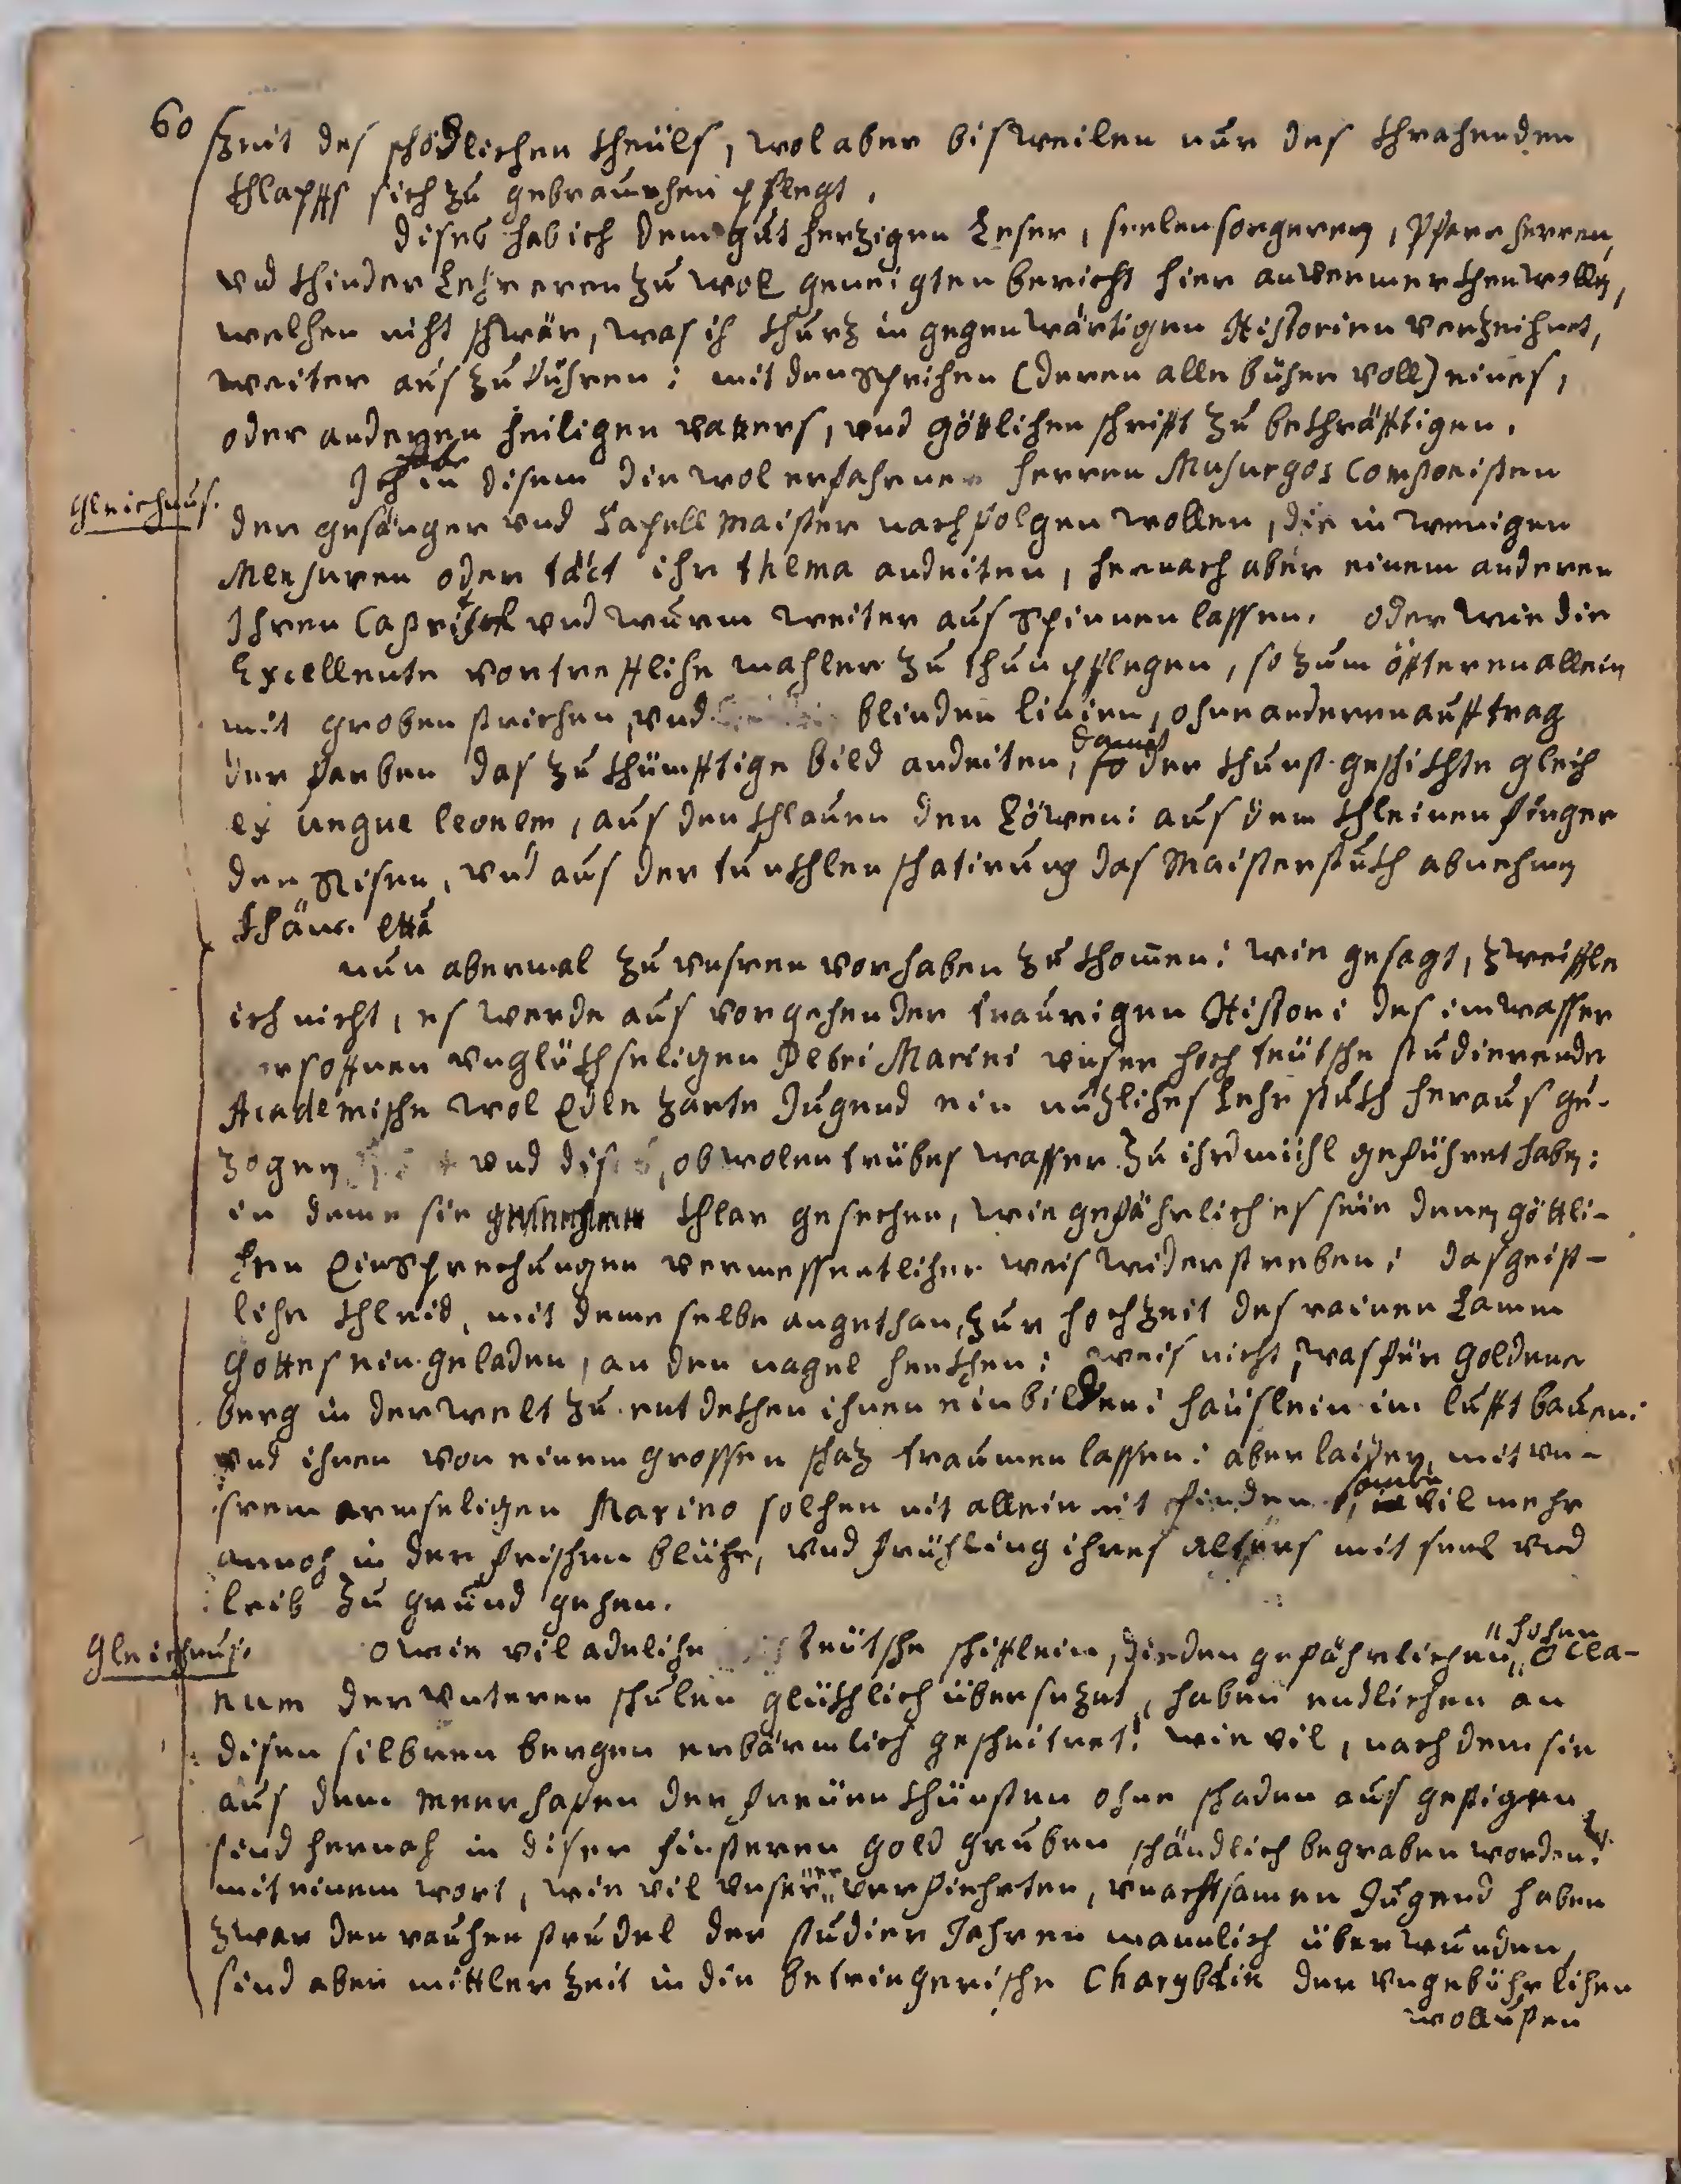 60 Zeit des schödlichen theüls, wol aber bisweilen nur des thrachenden
thlapffs sich zu gebrauchen pflegt.
Dises hab ich dem gut herzigen Leser, seelensorgeren, Pfarrherren,
vnd thinder Lehreren zu wol geneigten bericht hier anvermerthen wollen,
welchen nicht schwär, was ich thurz in gegenwärtigen Historien verzeichnet,
weiter aus zu führen: mit den sprichen (deren alle bücher voll) eines,
oder anderen heiligen vatters, vnd göttlichen schrift zu bethräfftigen.
Ich hab in disem die wol erfahrnen herren Musurgos Componisten
Gleichnus.
der gesänger vnd Capellmaister nachfolgen wollen, die in wenigen
Mensuren oder tact ihr thema andeiten, hernach aber einem anderen
Ihren Capritsch vnd wurm weiter aus spinnen lassen. oder wie die
Excellente vortreffliche mahler zu thun pflegen, so zum öffteren allein
mit groben strichen, vnd blinden linien, ohne anderen aufftrag
der farben das zu thünfftige bild andeiten, damit der thunst-geschithte gleich
ex ungue leonem, aus den thlauen den Löwen: aus dem thleinen finger
den Risen, vnd aus der tunthlen schatirung das Maisterstuth abnehmen
thäne. etta
nun abermal zu vnsren vorhaben zu thom̄en: wie gesagt, zweiffle
ich nicht, es werde aus vorgehender traurigen Histori des im wasser
ersoffnen vnglüthseligen Petri Marini vnser hoch teütsche studierende
Academische wol Edle zarte Jugend ein nuzliches Lehr stuth heraus ge-
zogen vnd dises, obwolen trübes wasser zu ihrd mühl geführet haben:
in deme sie thlar gesechen, wie gefährlich es seie denen göttli-
chen Einsprechungen vermessentlicher weis widerstreben: das geist-
liche thleid, mit deme selbe angethan, zur hochzeit des rainen Lamm
Gottes ein-geladen, an den nagel henthen: weis nicht, was für goldene
berg in der welt zu entdethen ihnen einbilden: häuslein im lufft bauen:
vnd ihnen von einem grossen schaz traumen lassen: aber laider, mit vn-
srem armseligen Marino solchen nit allein nit finden, sonder vil mehr
annoch in der frischen blühe, vnd frühling ihres alters mit seel vnd
leib zu grund gehen.
Gleichnus.
O wie vil adeliche teütsche schifflein, die den gefährlichen hohen Ocea-
num der vnteren schulen glüthlich übersezet, haben endlichen an
disen silbren bergen erbärmlich gescheitret! wie vil, nach dem sie
aus dem meerhafen der freüen thünsten ohne schaden aus gestigen,
sind hernach in diser finsteren gold gruben schändlich begraben worden!
mit einem wort, wie vil vnserer verfiehrten, vnachtsamen Jugend haben
zwar den rauhen strudel der studier Jahren mannlich überwunden,
sind aber mittler zeit in die betriegerische Charybdin der vngebührlichen
wollusten